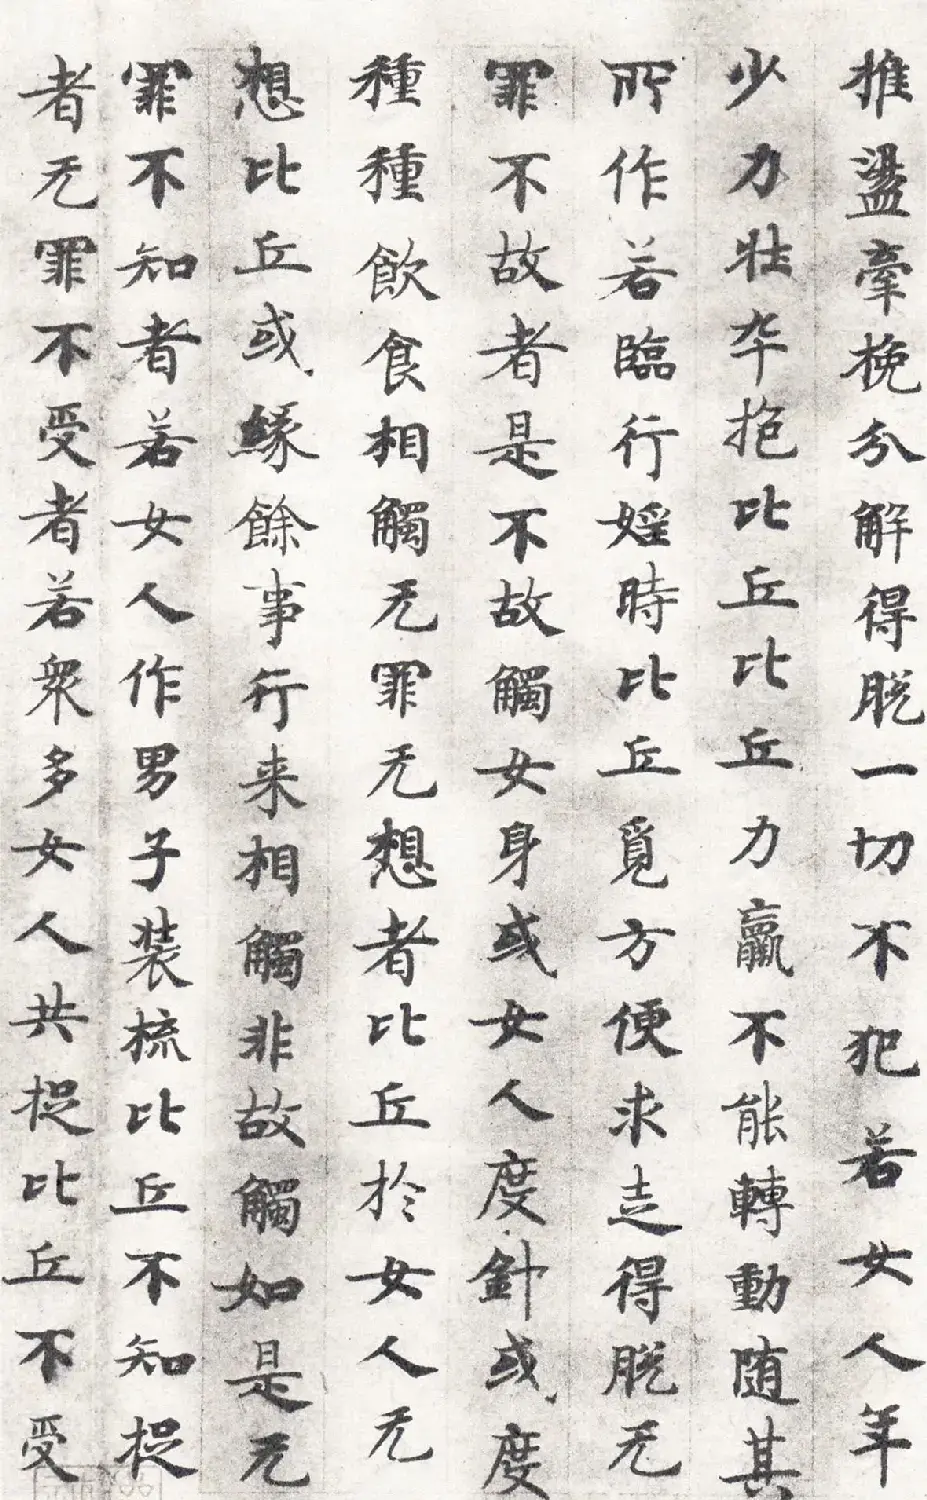 推盪牽挽分解得脫一切不犯若女人年
少力壯卒抱比丘比丘力羸不能轉動随其
所作若臨行婬時比丘覓方便求走得脫无
罪不故者是不故觸女身或女人度針或度
種種飲食相觸无罪无想者比丘於女人无
想比丘或緣餘事行来相觸非故觸如是无
罪不知者若女人作男子装梳比丘不知捉
者无罪不受者若衆多女人共捉比丘不受